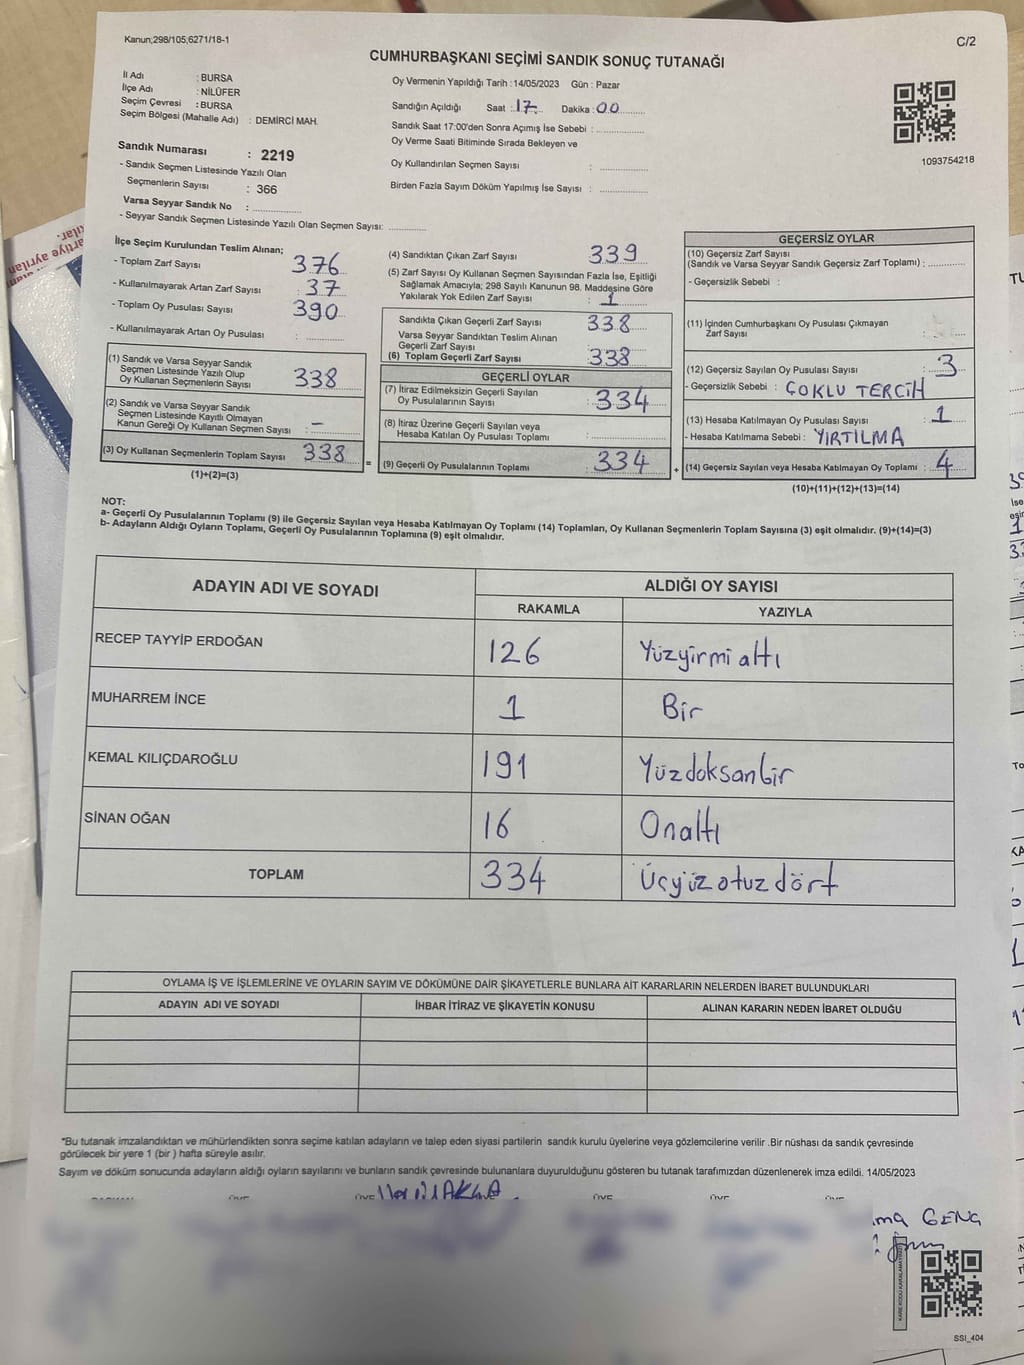 Kanun;298/105;6271/18-1
C/2
CUMHURBAŞKANI SEÇİMİ SANDIK SONUÇ TUTANAĞI
İl Adı : BURSA
İlçe Adı : NİLÜFER
Seçim Çevresi : BURSA
Seçim Bölgesi (Mahalle Adı) : DEMİRCİ MAH.
Oy Vermenin Yapıldığı Tarih : 14/05/2023 Gün : Pazar
Sandığın Açıldığı Saat : 17 Dakika : 00
Sandık Saat 17:00'den Sonra Açımış İse Sebebi :
Oy Verme Saati Bitiminde Sırada Bekleyen ve
Oy Kullandırılan Seçmen Sayısı :
Birden Fazla Sayım Döküm Yapılmış İse Sayısı :
1093754218
Sandık Numarası : 2219
- Sandık Seçmen Listesinde Yazılı Olan
Seçmenlerin Sayısı : 366
Varsa Seyyar Sandık No :
- Seyyar Sandık Seçmen Listesinde Yazılı Olan Seçmen Sayısı:
İlçe Seçim Kurulundan Teslim Alınan;
- Toplam Zarf Sayısı 376
- Kullanılmayarak Artan Zarf Sayısı : 37
- Toplam Oy Pusulası Sayısı 390
- Kullanılmayarak Artan Oy Pusulası :
(1) Sandık ve Varsa Seyyar Sandık
Seçmen Listesinde Yazılı Olup
Oy Kullanan Seçmenlerin Sayısı 338
(2) Sandık ve Varsa Seyyar Sandık
Seçmen Listesinde Kayıtlı Olmayan
Kanun Gereği Oy Kullanan Seçmen Sayısı : -
(3) Oy Kullanan Seçmenlerin Toplam Sayısı 338
(1)+(2)=(3)
=
(4) Sandıktan Çıkan Zarf Sayısı 339
(5) Zarf Sayısı Oy Kullanan Seçmen Sayısından Fazla İse, Eşitliği
Sağlamak Amacıyla; 298 Sayılı Kanunun 98. Maddesine Göre
Yakılarak Yok Edilen Zarf Sayısı : 1
Sandıkta Çıkan Geçerli Zarf Sayısı 338
Varsa Seyyar Sandıktan Teslim Alınan
Geçerli Zarf Sayısı
(6) Toplam Geçerli Zarf Sayısı : 338
GEÇERLİ OYLAR
(7) İtiraz Edilmeksizin Geçerli Sayılan
Oy Pusulalarının Sayısı : 334
(8) İtiraz Üzerine Geçerli Sayılan veya
Hesaba Katılan Oy Pusulası Toplamı :
(9) Geçerli Oy Pusulalarının Toplamı : 334
+
GEÇERSİZ OYLAR
(10) Geçersiz Zarf Sayısı
(Sandık ve Varsa Seyyar Sandık Geçersiz Zarf Toplamı) :
- Geçersizlik Sebebi :
(11) İçinden Cumhurbaşkanı Oy Pusulası Çıkmayan
Zarf Sayısı
(12) Geçersiz Sayılan Oy Pusulası Sayısı : 3
- Geçersizlik Sebebi : ÇOKLU TERCİH
(13) Hesaba Katılmayan Oy Pusulası Sayısı : 1
- Hesaba Katılmama Sebebi : YIRTILMA
(14) Geçersiz Sayılan veya Hesaba Katılmayan Oy Toplamı : 4
(10)+(11)+(12)+(13)=(14)
NOT:
a- Geçerli Oy Pusulalarının Toplamı (9) ile Geçersiz Sayılan veya Hesaba Katılmayan Oy Toplamı (14) Toplamları, Oy Kullanan Seçmenlerin Toplam Sayısına (3) eşit olmalıdır. (9)+(14)=(3)
b- Adayların Aldığı Oyların Toplamı, Geçerli Oy Pusulalarının Toplamına (9) eşit olmalıdır.
ADAYIN ADI VE SOYADI
ALDIĞI OY SAYISI
RAKAMLA YAZIYLA
RECEP TAYYİP ERDOĞAN 126 Yüzyirmi altı
MUHARREM İNCE 1 Bir
KEMAL KILIÇDAROĞLU 191 Yüzdoksanbir
SİNAN OĞAN 16 Onaltı
TOPLAM 334 Üçyüzotuzdört
OYLAMA İŞ VE İŞLEMLERİNE VE OYLARIN SAYIM VE DÖKÜMÜNE DAİR ŞİKAYETLERLE BUNLARA AİT KARARLARIN NELERDEN İBARET BULUNDUKLARI
ADAYIN ADI VE SOYADI İHBAR İTİRAZ VE ŞİKAYETİN KONUSU ALINAN KARARIN NEDEN İBARET OLDUĞU
*Bu tutanak imzalandıktan ve mühürlendikten sonra seçime katılan adayların ve talep eden siyasi partilerin sandık kurulu üyelerine veya gözlemcilerine verilir .Bir nüshası da sandık çevresinde
görülecek bir yere 1 (bir ) hafta süreyle asılır.
Sayım ve döküm sonucunda adayların aldığı oyların sayılarını ve bunların sandık çevresinde bulunanlara duyurulduğunu gösteren bu tutanak tarafımızdan düzenlenerek imza edildi. 14/05/2023
GENÇ
SSI_404